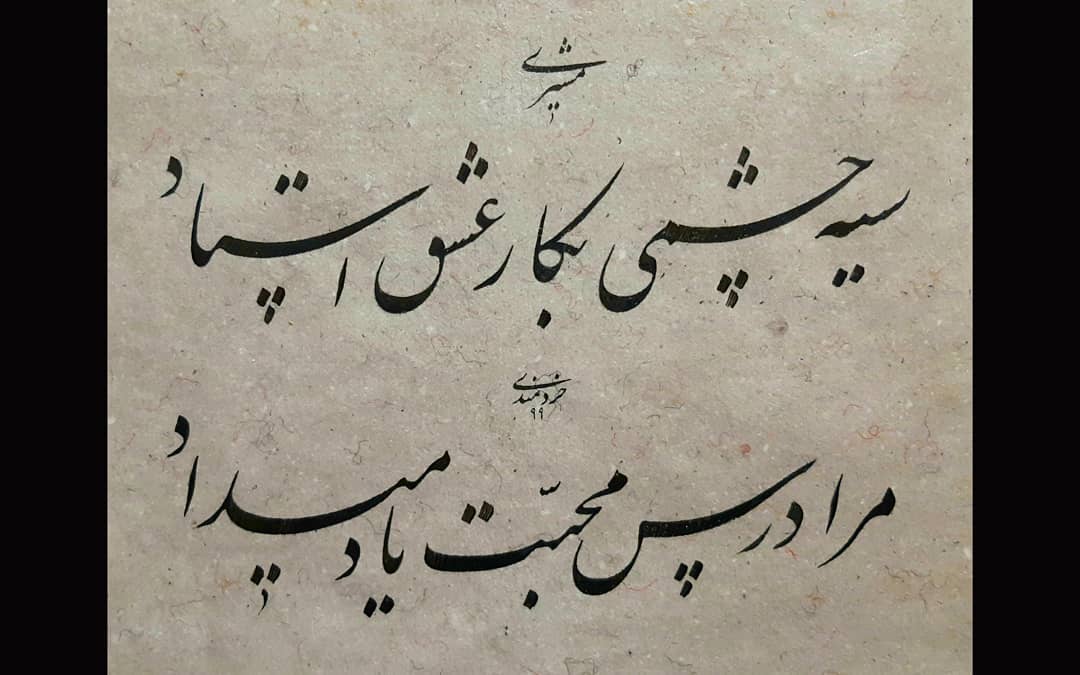 مشیری
سیه چشمی بکار عشق استاد
خردمندی
۹۹
مرا درس محبّت یاد میداد